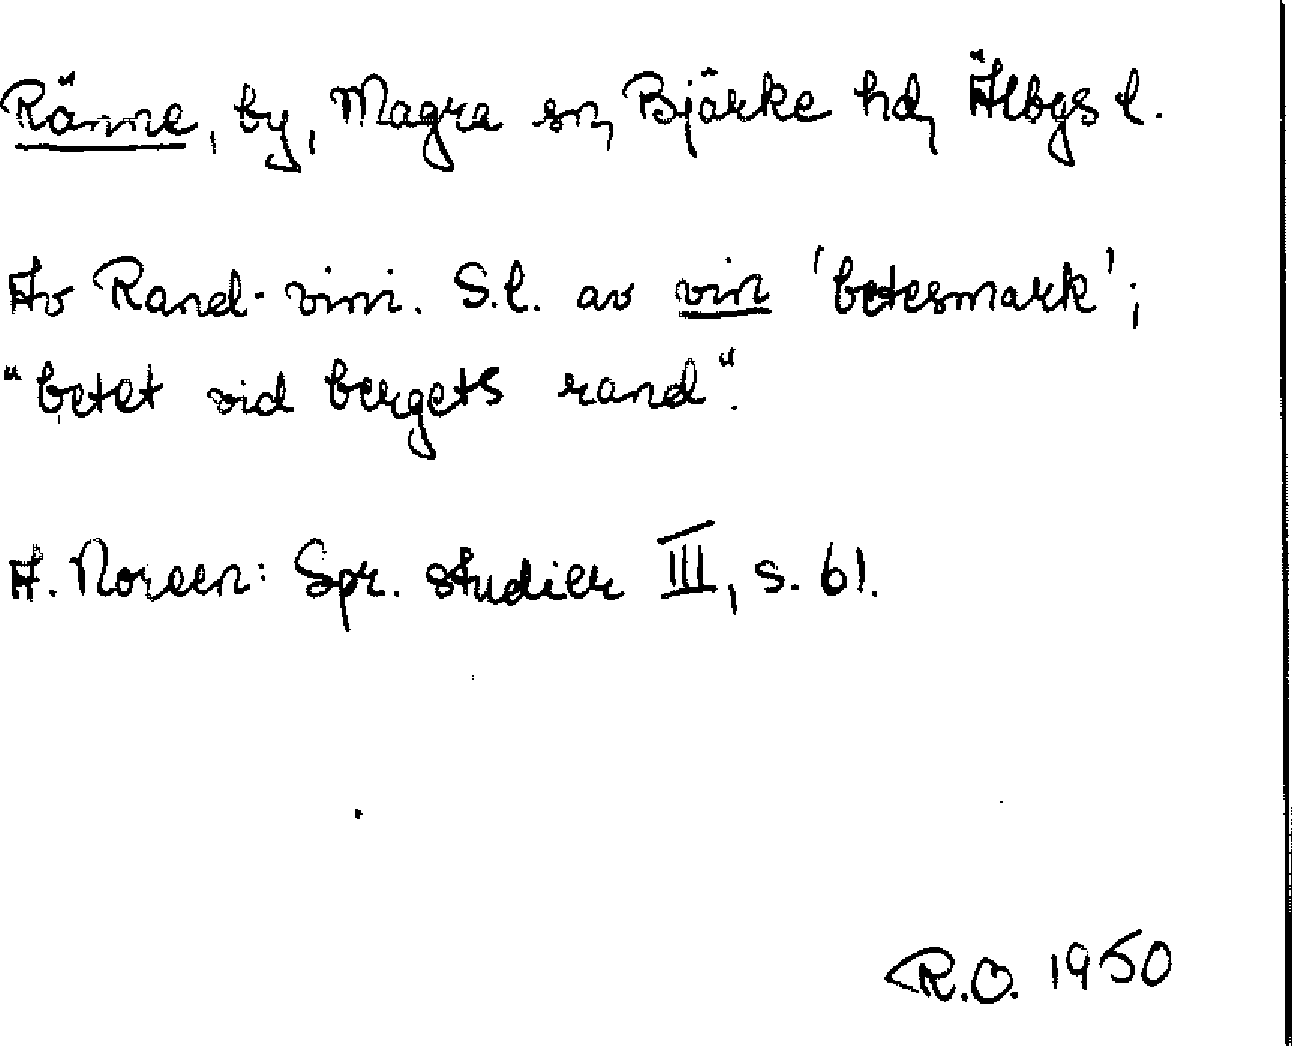 Ränne, by, Magra sn, Bjärke hd, Älbgs l.
Av Rand-vini. S.l. av vin 'betesmark';
"betet vid bergets rand".
A. Noreen: Spr. studier III, s. 61.
R.O. 1950